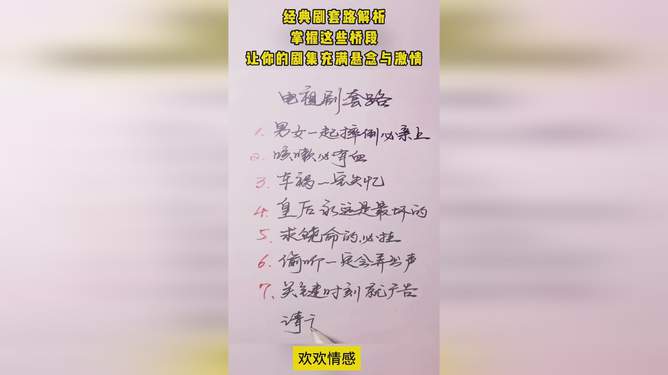 经典剧套路解析
掌握这些桥段
让你的剧集充满悬念与激情
电视剧套路
1. 男女一起摔倒必亲上
2. 咳嗽必有血
3. 车祸一定失忆
4. 皇后永远是最坏的
5. 求饶命的必挂
6. 偷听一定会弄出声
7. 关键时刻就广告
请
欢欢情感